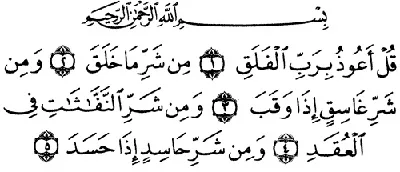 بِسْمِ اللَّهِ الرَّحْمَٰنِ الرَّحِيمِ
قُلْ أَعُوذُ بِرَبِّ الْفَلَقِ ١ مِن شَرِّ مَا خَلَقَ ٢ وَمِن
شَرِّ غَاسِقٍ إِذَا وَقَبَ ٣ وَمِن شَرِّ النَّفَّاثَاتِ فِي
الْعُقَدِ ٤ وَمِن شَرِّ حَاسِدٍ إِذَا حَسَدَ ٥